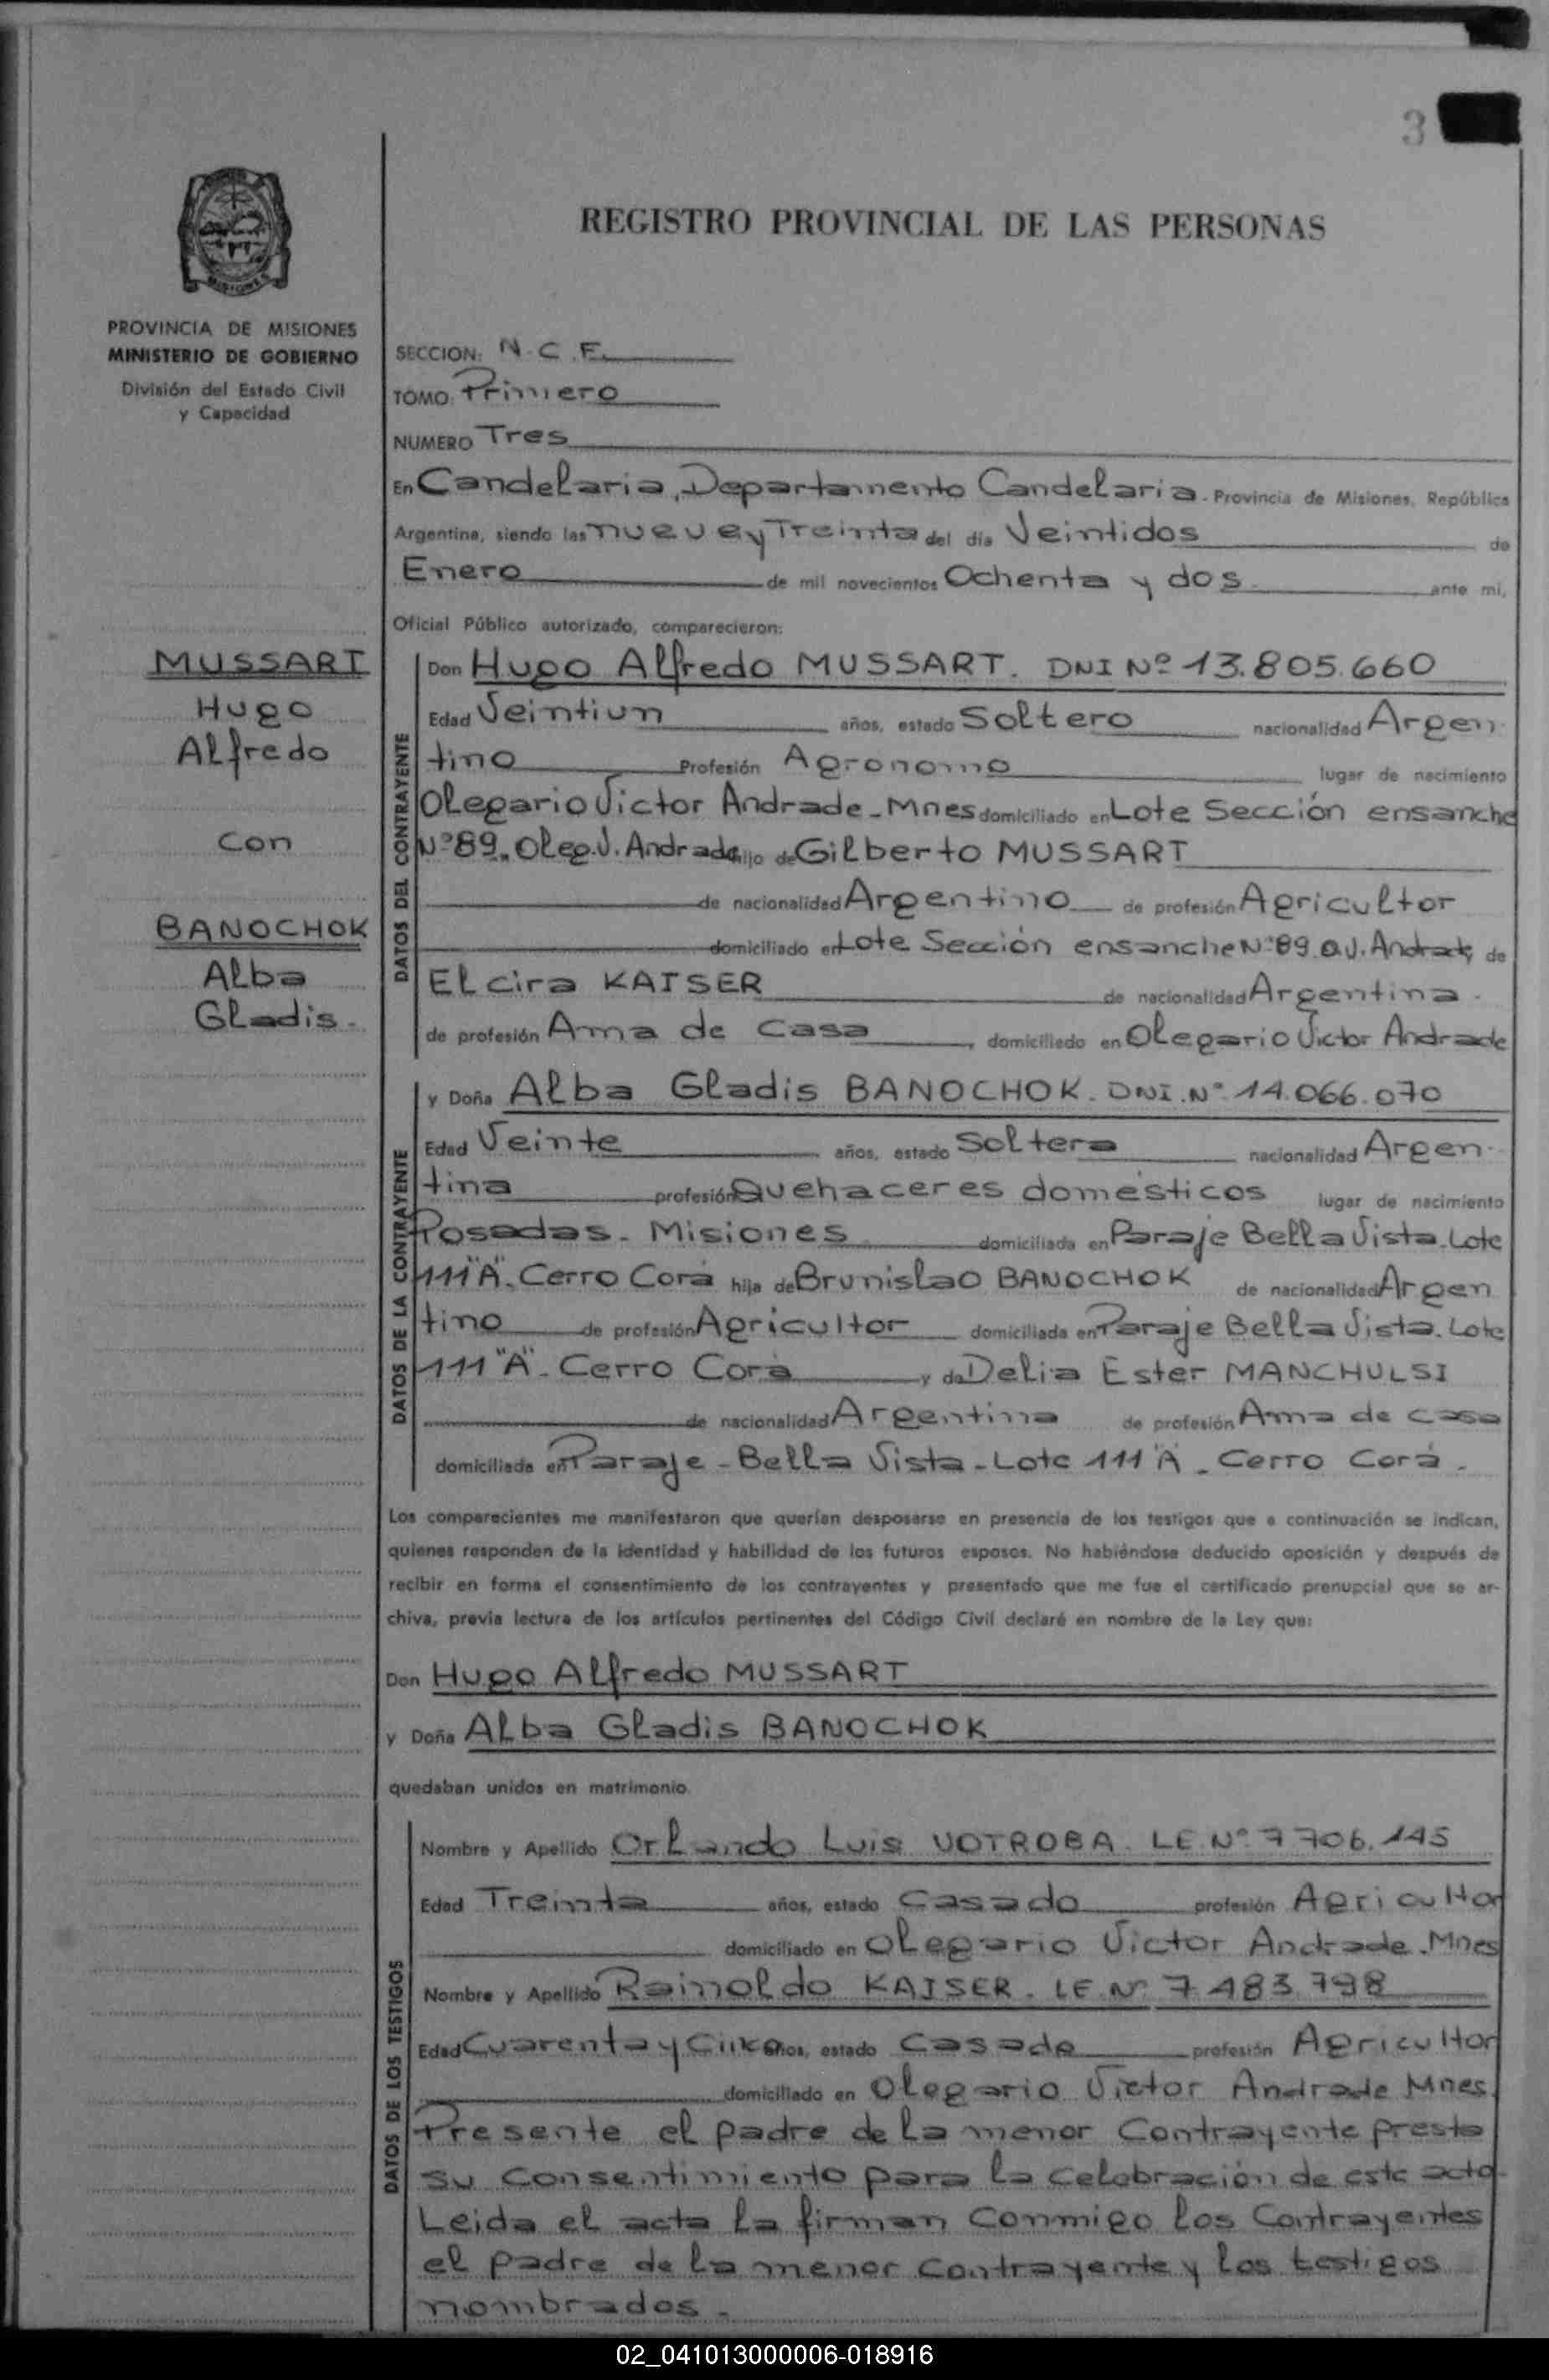 3
MISIONES
REGISTRO PROVINCIAL DE LAS PERSONAS
PROVINCIA DE MISIONES
MINISTERIO DE GOBIERNO
División del Estado Civil
y Capacidad
SECCION: N.C.F.
TOMO: Primero
NUMERO Tres
En Candelaria, Departamento Candelaria. Provincia de Misiones, República
Argentina, siendo las nueve y Treinta del día Veintidos de
Enero de mil novecientos Ochenta y dos ante mi,
Oficial Público autorizado, comparecieron:
MUSSART
Hugo
Alfredo
con
BANOCHOK
Alba
Gladis.
DATOS DEL CONTRAYENTE
Don Hugo Alfredo MUSSART. DNI Nº 13.805.660
Edad Veintiun años, estado Soltero nacionalidad Argen
tino Profesión Agronomo lugar de nacimiento
Olegario Victor Andrade-Mnes domiciliado en Lote Sección ensanche
Nº89. Oleg.V. Andrade hijo de Gilberto MUSSART
de nacionalidad Argentino de profesión Agricultor
domiciliado en Lote Sección ensanche Nº89 O.V. Andrade, de
Elcira KAISER de nacionalidad Argentina.
de profesión Ama de Casa, domiciliado en Olegario Victor Andrade
DATOS DE LA CONTRAYENTE
y Doña Alba Gladis BANOCHOK. DNI.Nº 14.066.070
Edad Veinte años, estado Soltera nacionalidad Argen-
tina profesión Quehaceres domésticos lugar de nacimiento
Posadas. Misiones domiciliada en Paraje Bella Vista. Lote
111"A". Cerro Corá hija de Brunislao BANOCHOK de nacionalidad Argen
tino de profesión Agricultor domiciliada en Paraje Bella Vista. Lote
111"A". Cerro Corá y de Delia Ester MANCHULSI
de nacionalidad Argentina de profesión Ama de casa
domiciliada en Paraje-Bella Vista-Lote 111"A. Cerro Corá.
Los comparecientes me manifestaron que querían desposarse en presencia de los testigos que a continuación se indican,
quienes responden de la identidad y habilidad de los futuros esposos. No habiéndose deducido oposición y después de
recibir en forma el consentimiento de los contrayentes y presentado que me fue el certificado prenupcial que se ar-
chiva, previa lectura de los artículos pertinentes del Código Civil declaré en nombre de la Ley que:
Don Hugo Alfredo MUSSART
y Doña Alba Gladis BANOCHOK
quedaban unidos en matrimonio.
DATOS DE LOS TESTIGOS
Nombre y Apellido Orlando Luis VOTROBA. LE.Nº 7.706.145
Edad Treinta años, estado Casado profesión Agricultor
domiciliado en Olegario Victor Andrade. Mnes
Nombre y Apellido Rainoldo KAISER. LE.Nº 7.483.798
Edad Cuarenta y Cinco años, estado Casado profesión Agricultor
domiciliado en Olegario Victor Andrade Mnes.
Presente el padre de la menor Contrayente presta
su Consentimiento para la celebración de este acto.
Leida el acta la firman Conmigo los Contrayentes
el padre de la menor contrayente y los testigos
nombrados.
02_041013000006-018916